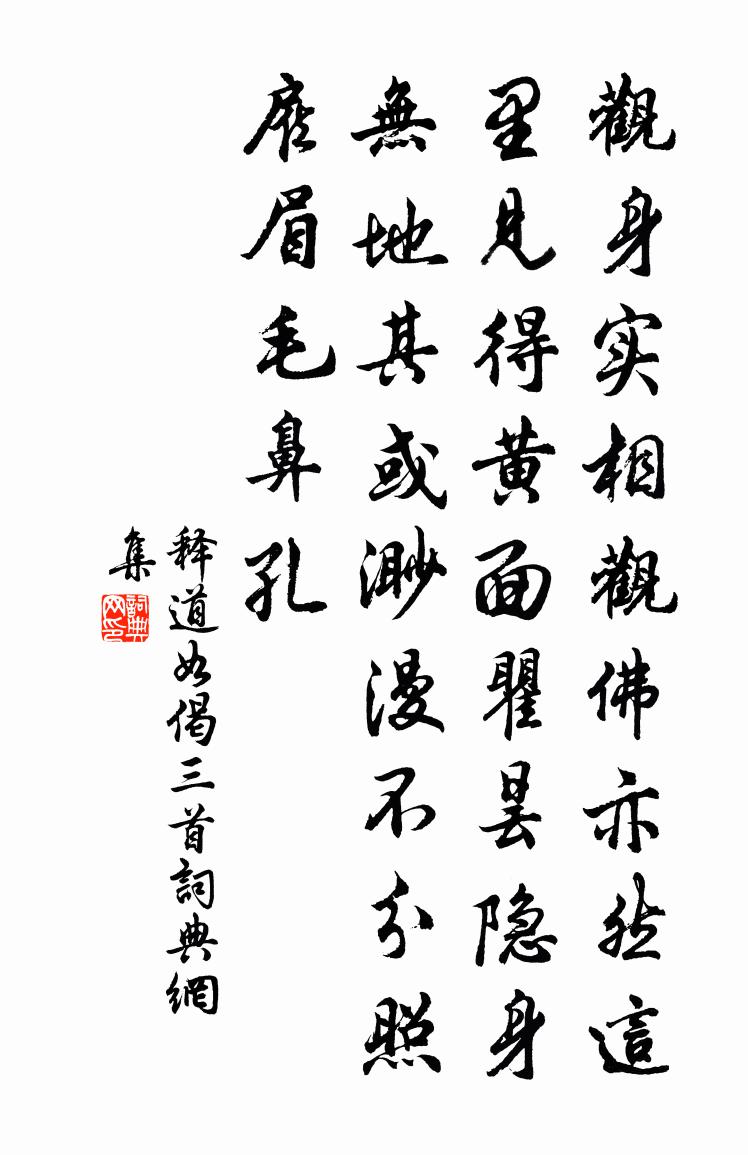 觀身实相觀佛亦然這
里見得黄面瞿曇隐身
無地其或渺漫不分照
㡳眉毛鼻孔
释道如偈三首詞典網
集
詞典网印